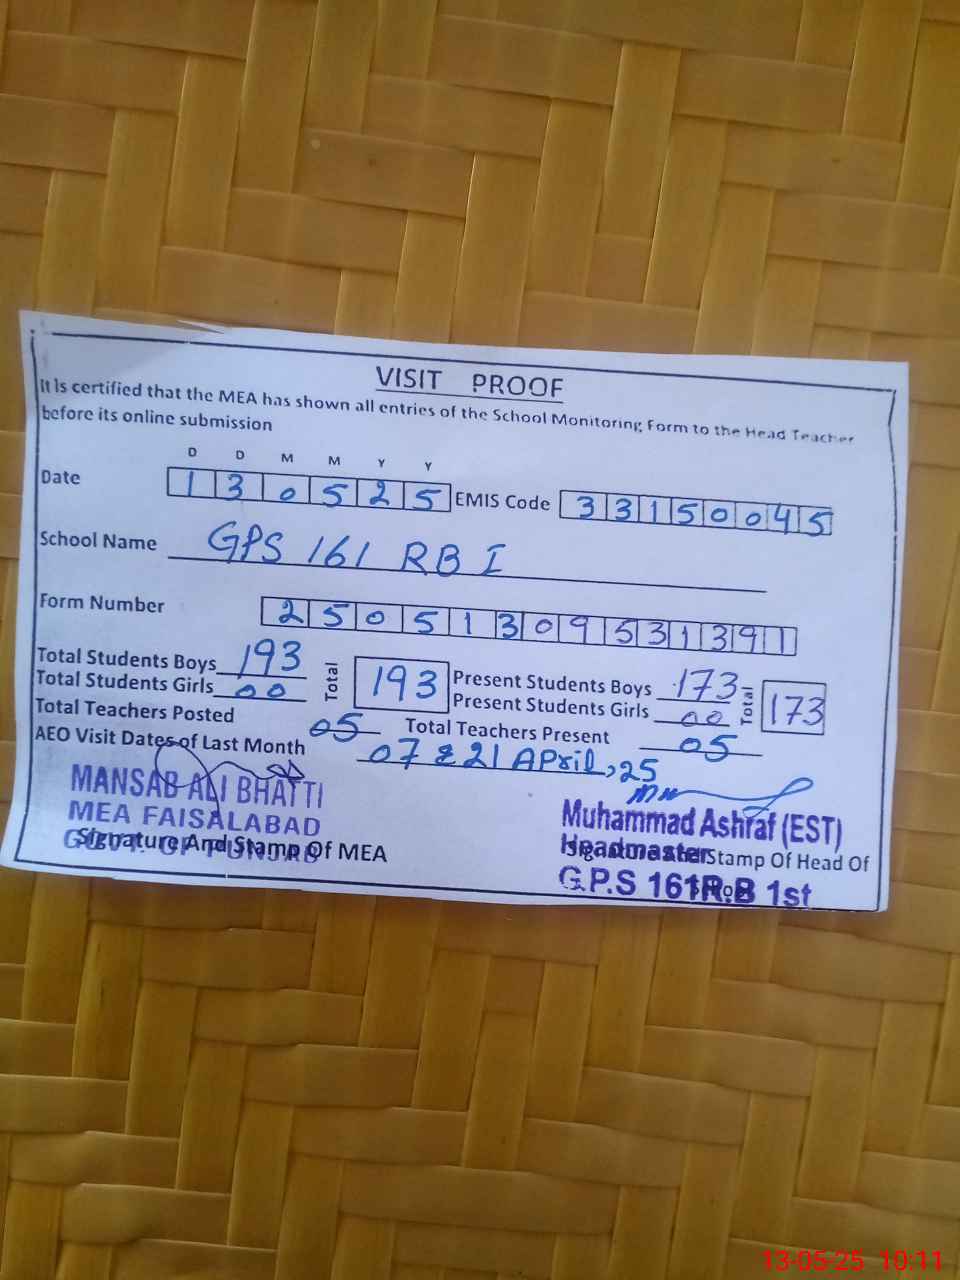 VISIT PROOF
It Is certified that the MEA has shown all entries of the School Monitoring Form to the Head Teacher
before its online submission
D D M M Y Y
Date 1 3 0 5 2 5 EMIS Code 3 3 1 5 0 0 4 5
School Name GPS 161 RB I
Form Number 2 5 0 5 1 3 0 9 5 3 1 3 9 1
Total Students Boys 193 Total 193 Present Students Boys 173 Total 173
Total Students Girls 00 Present Students Girls 00
Total Teachers Posted 05 Total Teachers Present 05
AEO Visit Dates of Last Month 07 & 21 April, 25
MANSAB ALI BHATTI
MEA FAISALABAD
GOVT. OF PUNJAB
Signature And Stamp Of MEA
Muhammad Ashraf (EST)
Headmaster
Signature and Stamp Of Head Of
G.P.S 161R.B 1st
13-05-25 10:11